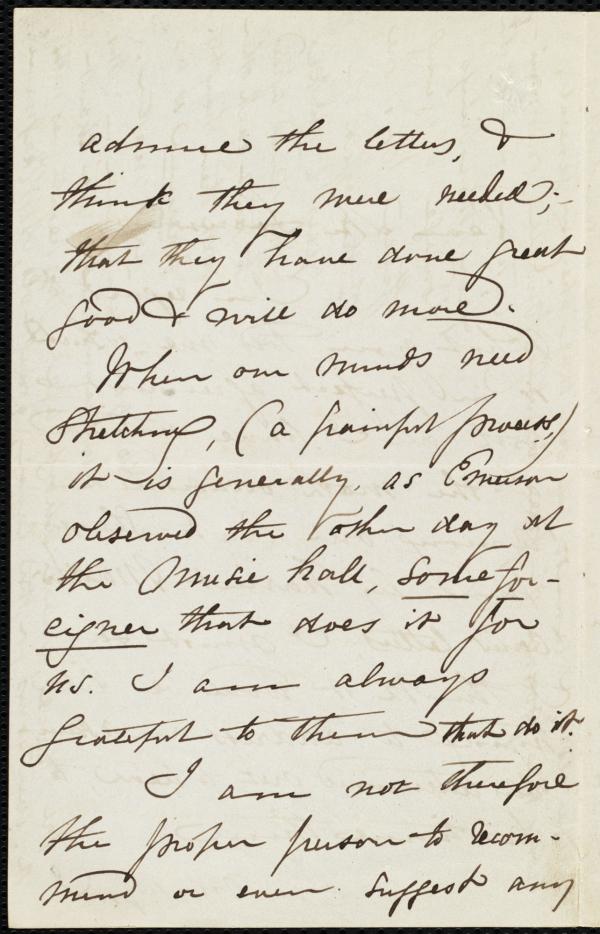 admire the letters, &
think they were needed;-
that they have done great
good & will do more.
When our minds need
stretching, (a painful process,)
it is generally, as Emerson
observed the other day at
the Music hall, some for-
eigner that does it for
us. I am always
grateful to them that do it.
I am not therefore
the proper person to recom-
mend or even suggest any